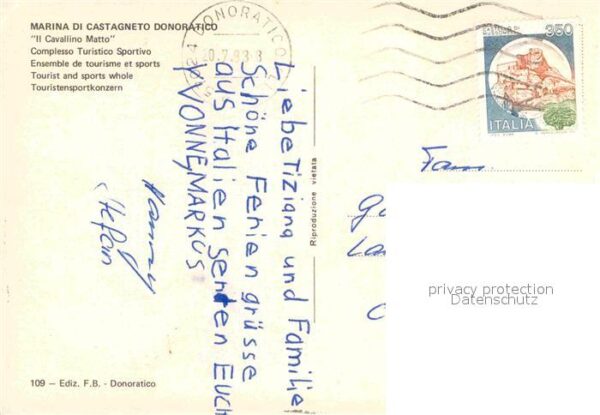 MARINA DI CASTAGNETO DONORATICO
"Il Cavallino Matto"
Complesso Turistico Sportivo
Ensemble de tourisme et sports
Tourist and sports whole
Touristensportkonzern
DONORATICO
350
ITALIA
Liebe Tiziana und Familie
Schöne Feriengrüsse
aus Italien senden EUCH
YVONNE, MARKUS
Stefan
Riproduzione vietata
Fam.
privacy protection
Datenschutz
109 — Ediz. F.B. - Donoratico